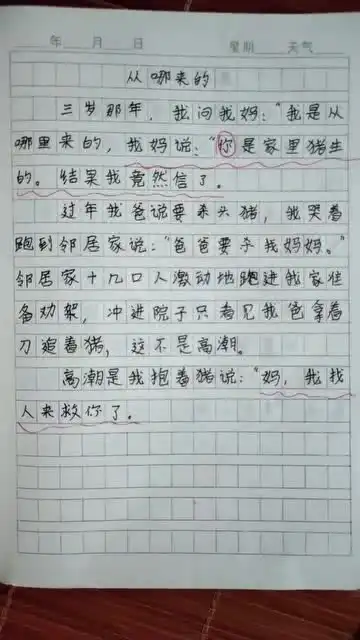 年 月 日 星期 天气
从哪来的
三岁那年，我问我妈："我是从
哪里来的，我妈说："你是家里猪生
的。结果我竟然信了。
过年我爸说要杀头猪，我哭着
跑到邻居家说："爸爸要杀我妈妈。"
邻居家十几口人激动地跑进我家准
备劝架，冲进院子只看见我爸拿着
刀追着猪，这不是高潮。
高潮是我抱着猪说："妈，我找
人来救你了。